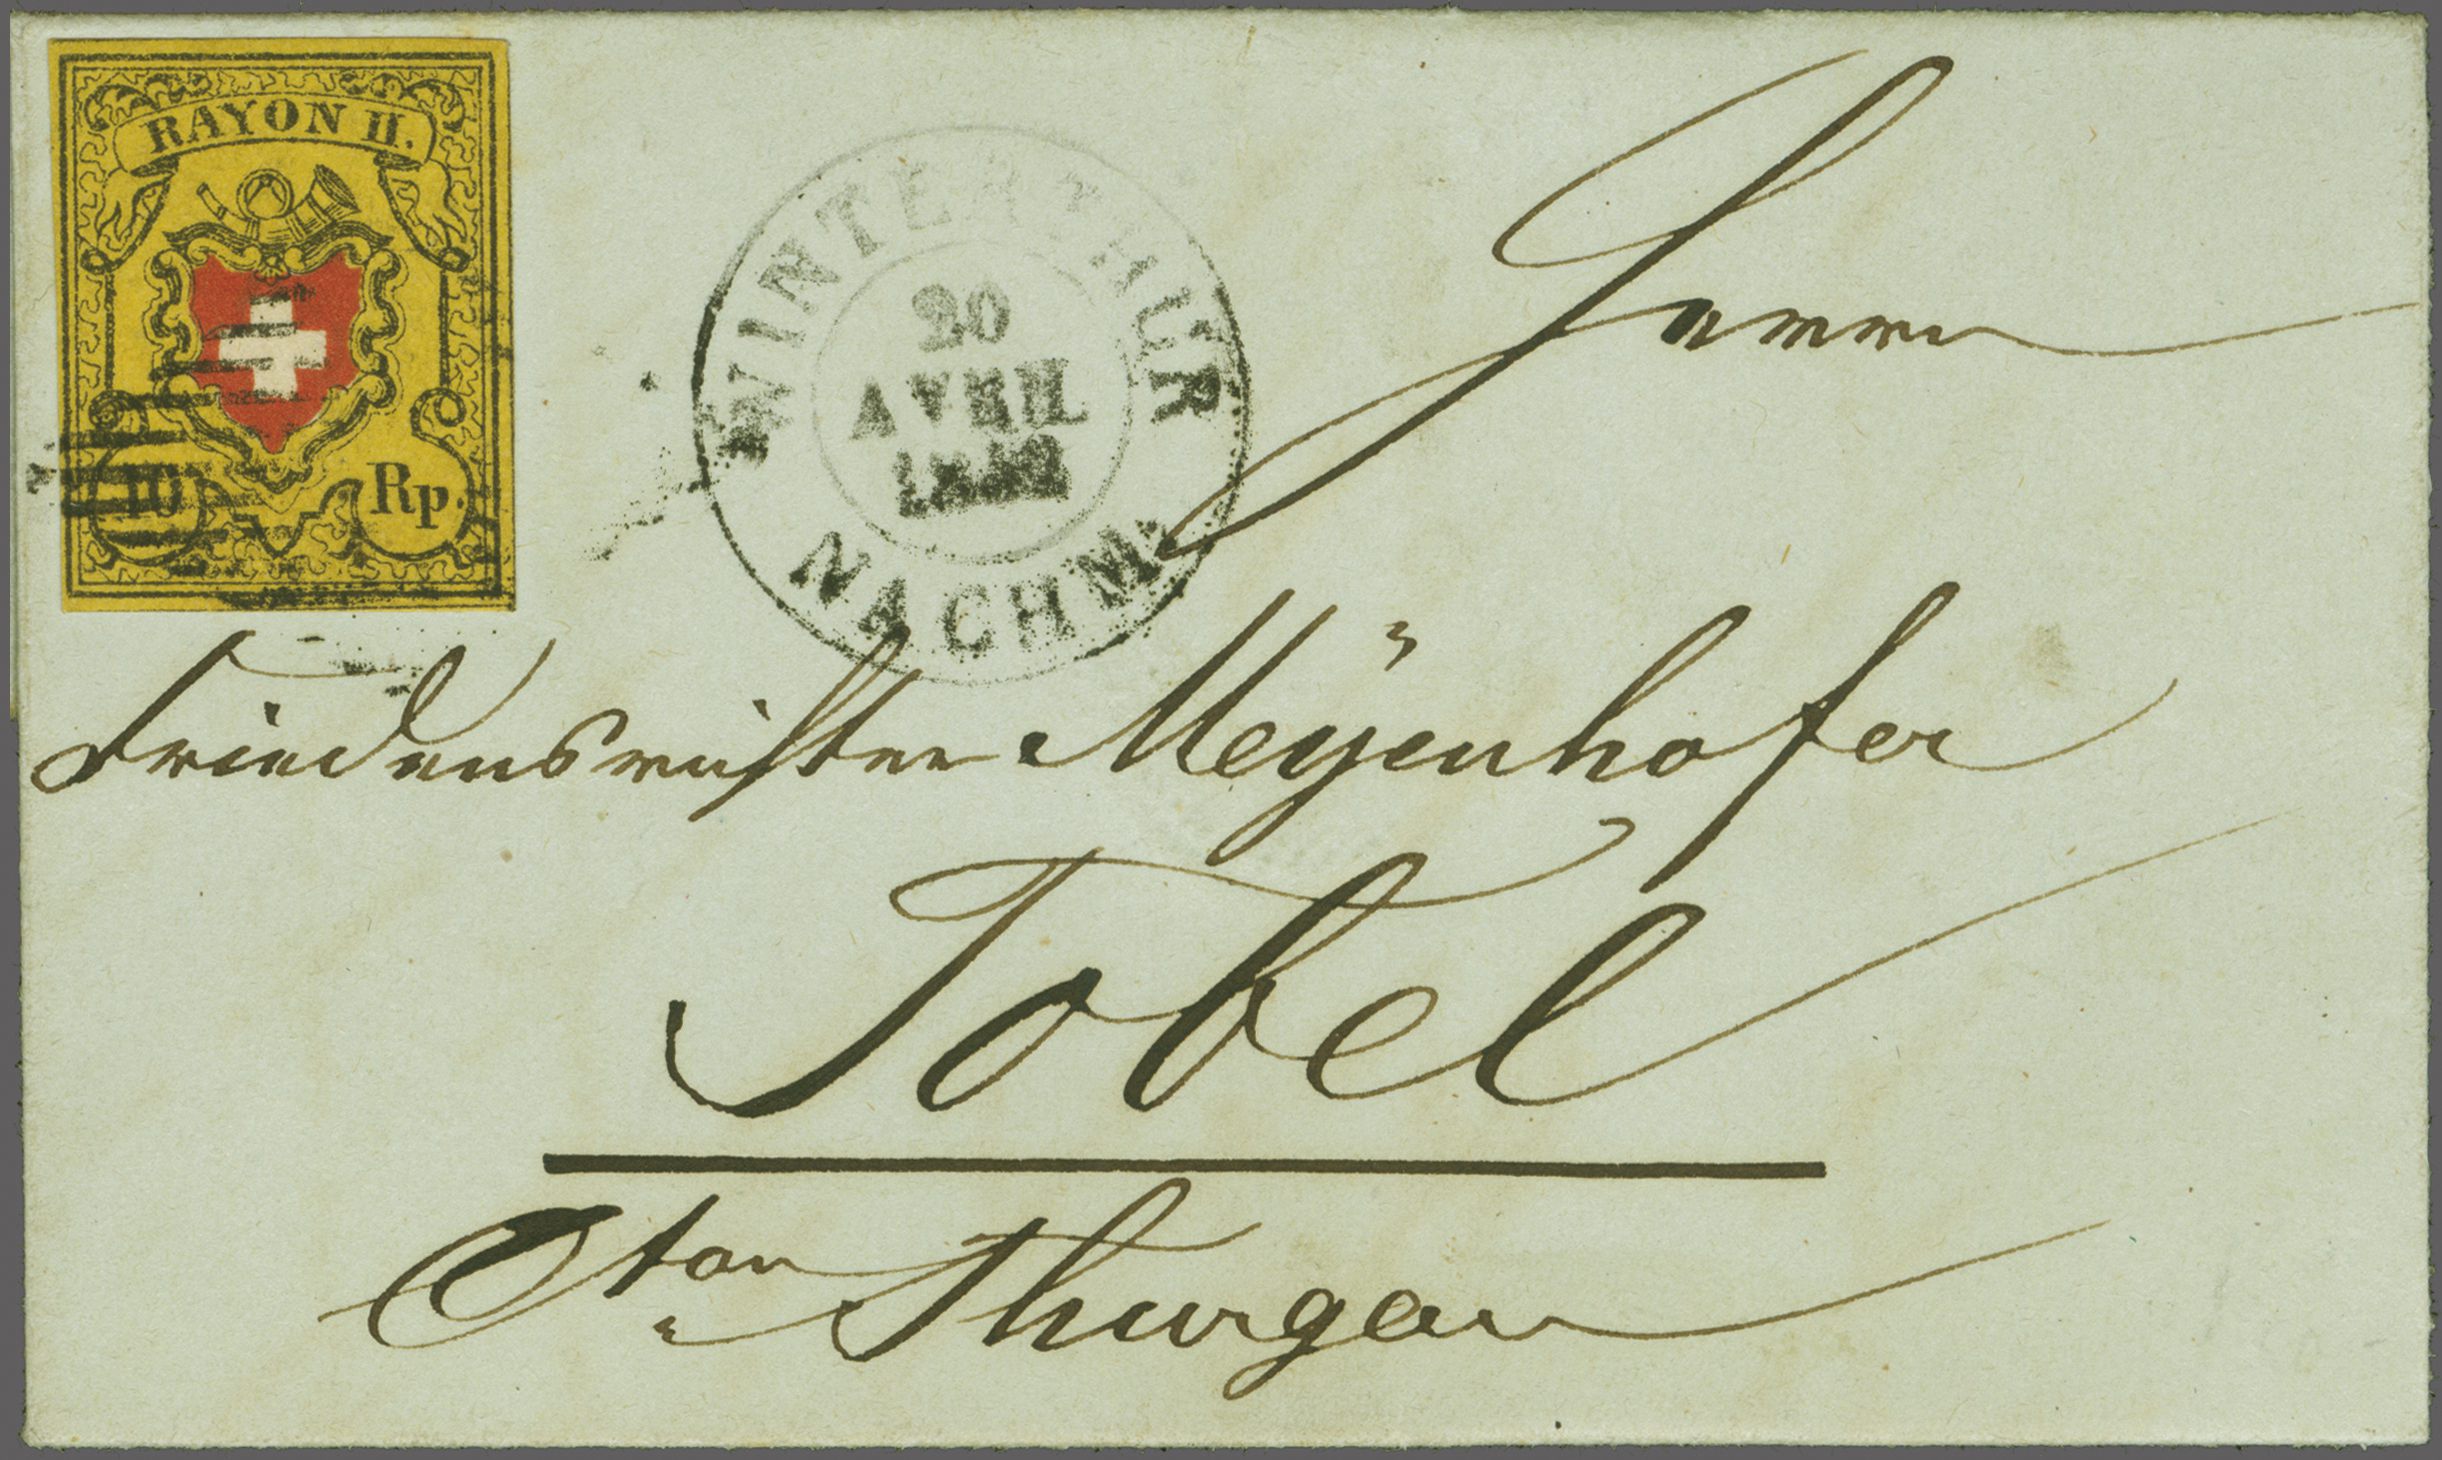 RAYON II.
10 Rp.
WINTERTHUR
20
AVRIL
NACHM.
Herrn
Friedensrichter Meÿenhofer
Tobel
Cton Thurgau